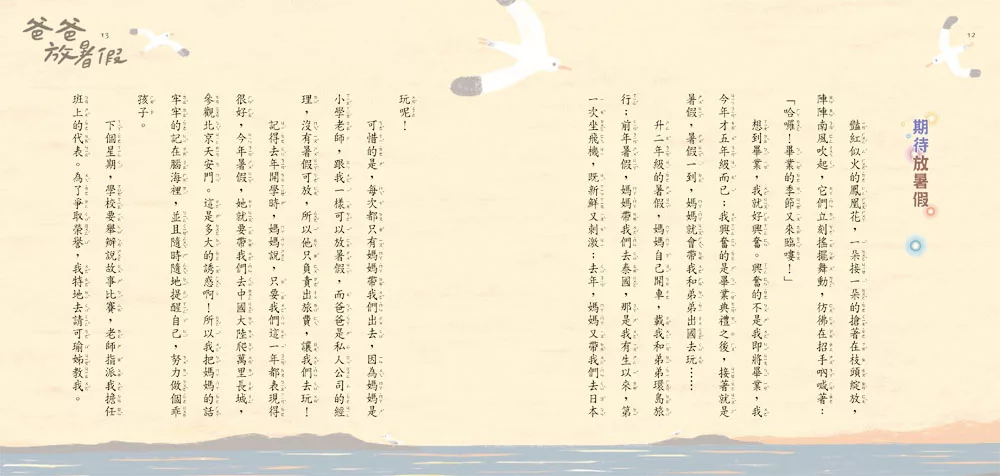 12
期待放暑假
豔紅似火的鳳凰花，一朵接一朵的搶著在枝頭綻放，
陣陣南風吹起，它們立刻搖擺舞動，彷彿在招手吶喊著：
「哈囉！畢業的季節又來臨嘍！」
想到畢業，我就好興奮。興奮的不是我即將畢業，我
今年才五年級而已；我興奮的是畢業典禮之後，接著就是
暑假，暑假一到，媽媽就會帶我和弟弟出國去玩……
升二年級的暑假，媽媽自己開車，載我和弟弟環島旅
行；前年暑假，媽媽帶我們去泰國，那是我有生以來，第
一次坐飛機，既新鮮又刺激；去年，媽媽又帶我們去日本
13
爸爸
放暑假
玩呢！
可惜的是，每次都只有媽媽帶我們出去，因為媽媽是
小學老師，跟我一樣可以放暑假，而爸爸是私人公司的經
理，沒有暑假可放，所以他只負責出旅費，讓我們去玩！
記得去年開學時，媽媽說，只要我們這一年都表現得
很好，今年暑假，她就要帶我們去中國大陸爬萬里長城，
參觀北京天安門。這是多大的誘惑啊！所以我把媽媽的話
牢牢的記在腦海裡，並且隨時隨地提醒自己，努力做個乖
孩子。
下個星期，學校要舉辦說故事比賽，老師指派我擔任
班上的代表。為了爭取榮譽，我特地去請可瑜姊教我。